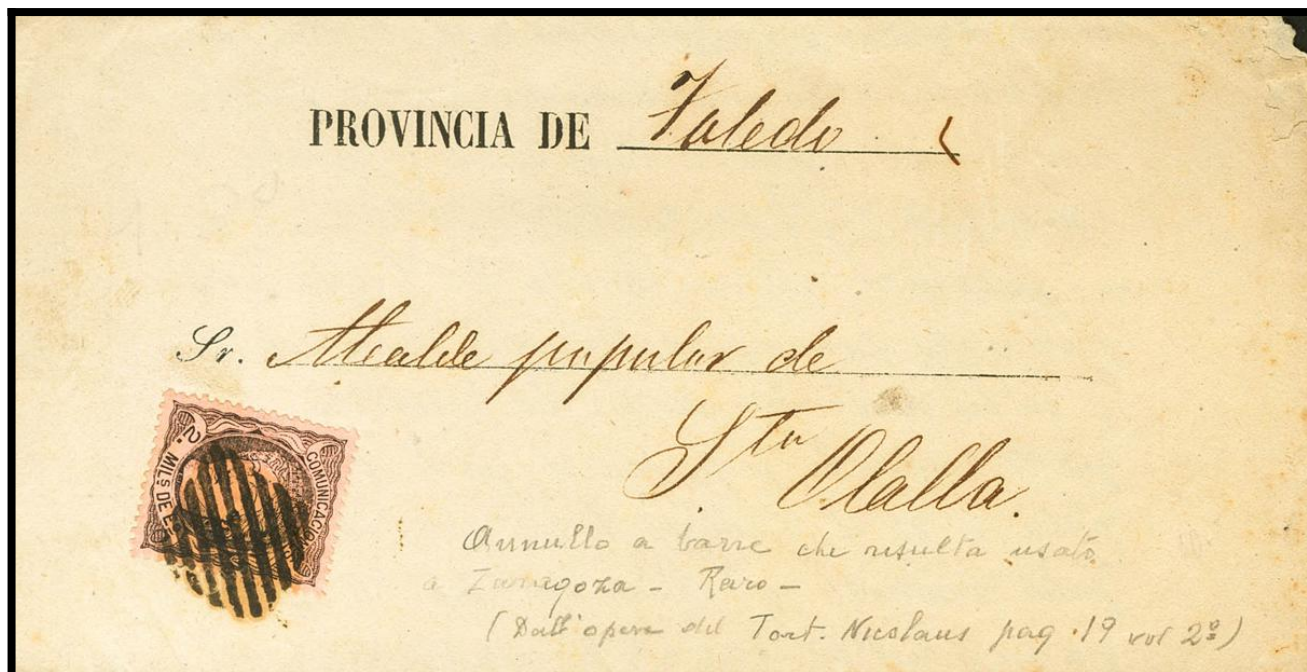 PROVINCIA DE Toledo
Sr. Alcalde popular de
Sta Olalla.
COMUNICACI
2. MILS DE E
Annullo a barre che risulta usato
a Zaragoza - Raro -
(Dall'opera del Tort. Nicolaus pag. 19 vol 2º)